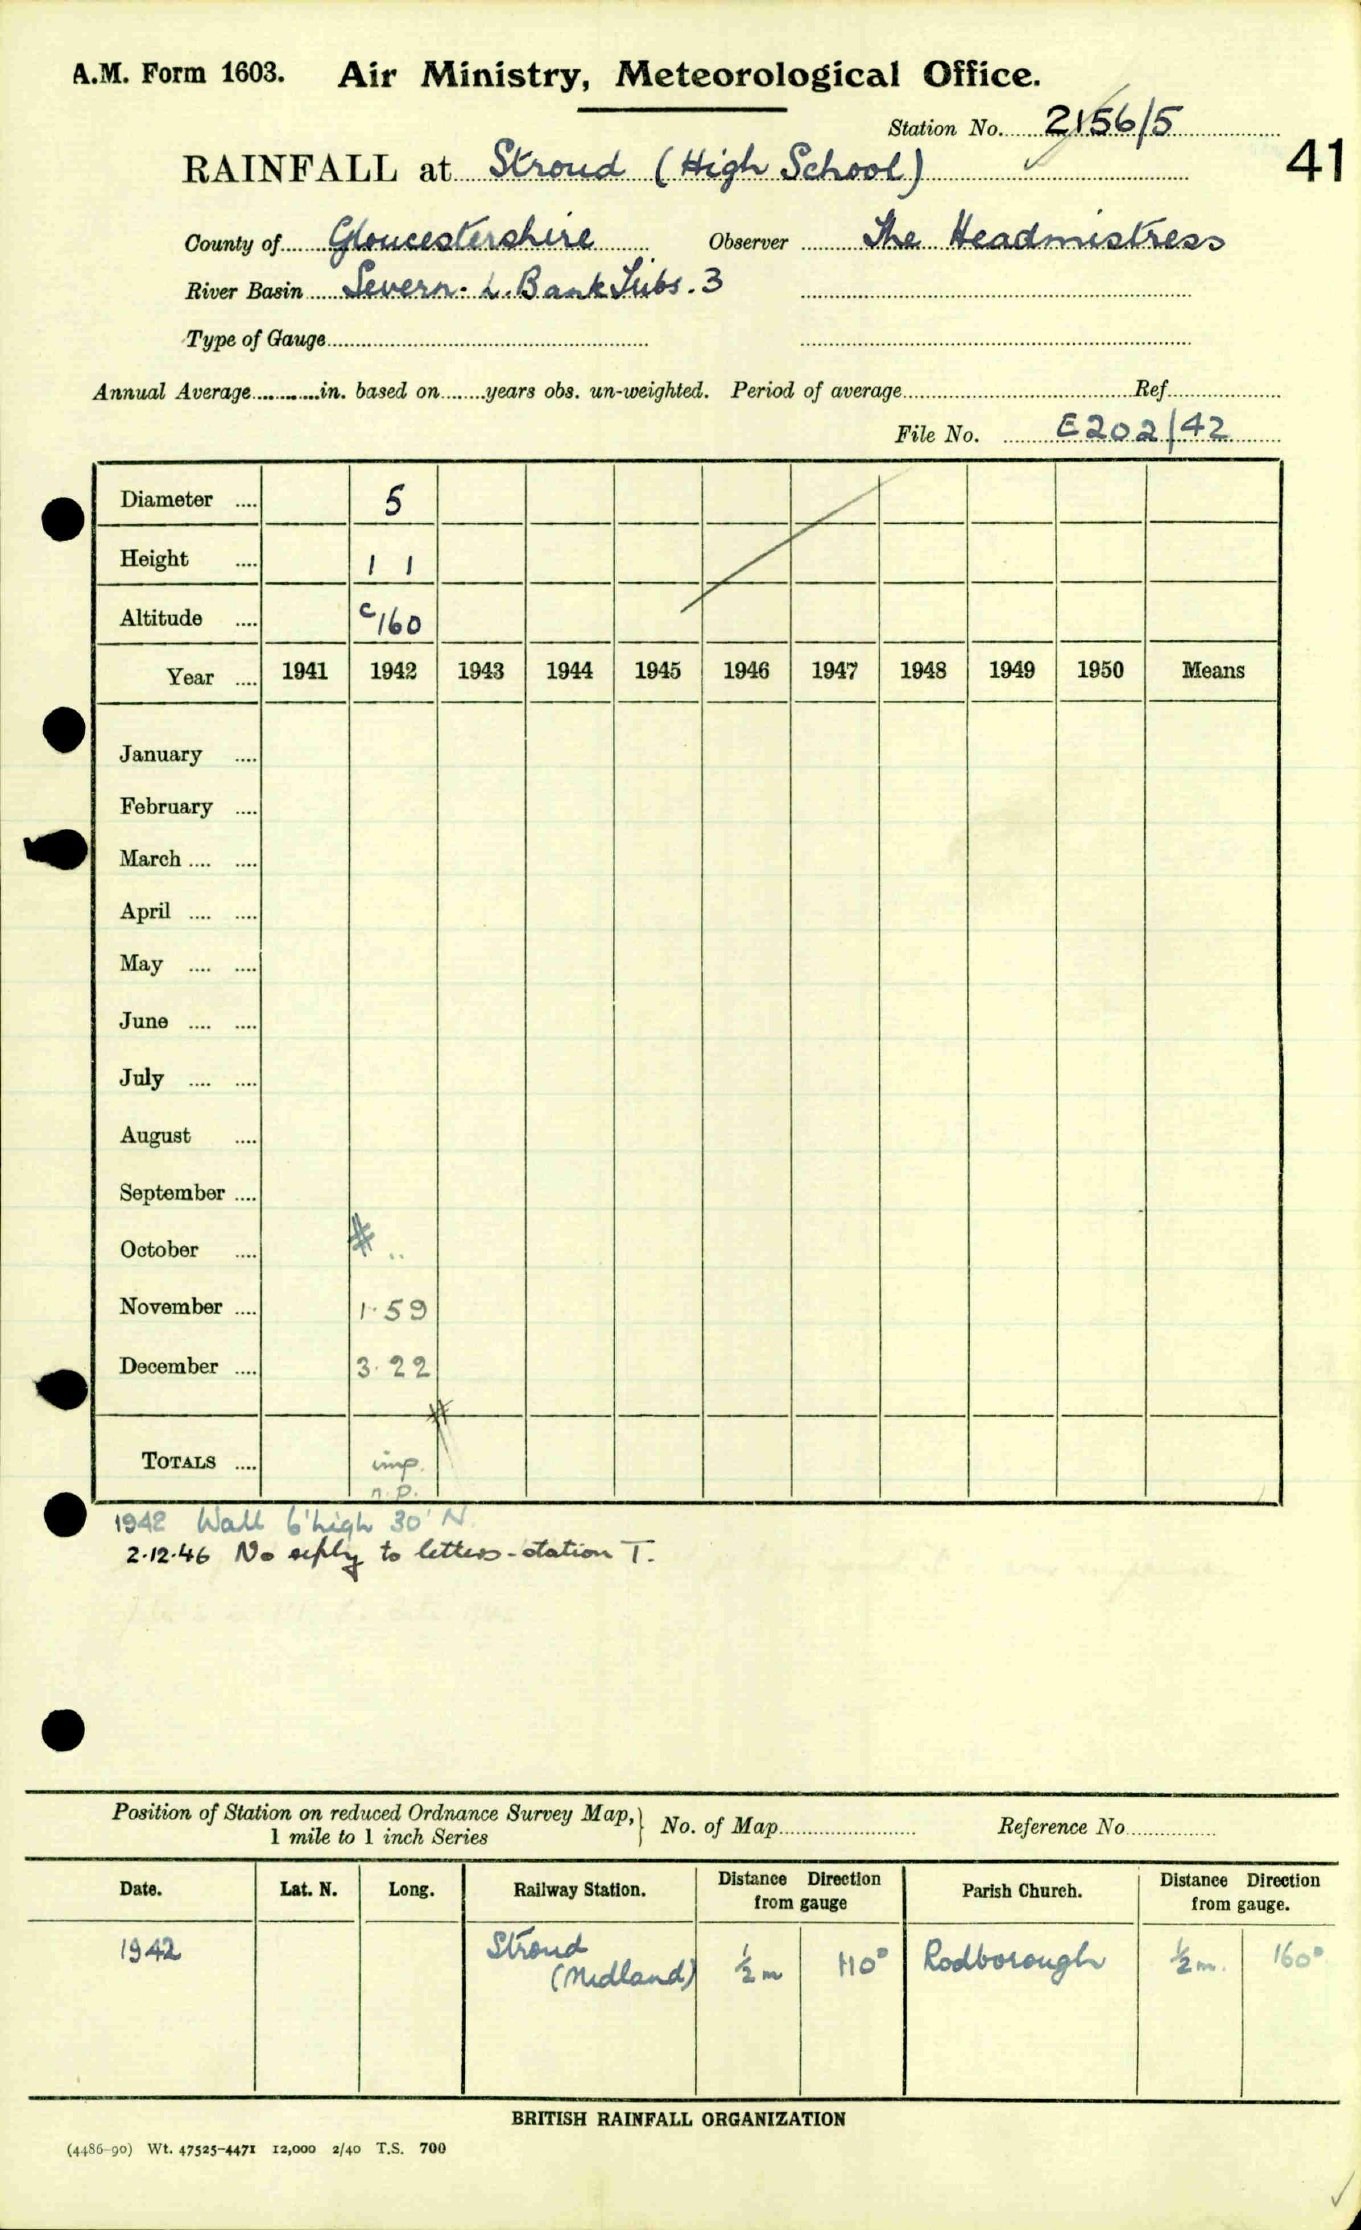 A.M. Form 1603. Air Ministry, Meteorological Office.
Station No. 2156/5
RAINFALL at Stroud (High School) 41
County of Gloucestershire Observer The Headmistress
River Basin Severn. L. Bank Tribs. 3
Type of Gauge
Annual Average in. based on years obs. un-weighted. Period of average Ref.
File No. E202/42
Diameter 5
Height 1 1
Altitude c160
Year 1941 1942 1943 1944 1945 1946 1947 1948 1949 1950 Means
January
February
March
April
May
June
July
August
September
October # ..
November 1.59
December 3.22
#
TOTALS imp.
n.p.
1942 Wall 6' high 30' N.
2.12.46 No reply to letters - station T.
Position of Station on reduced Ordnance Survey Map, } No. of Map Reference No
1 mile to 1 inch Series
Date. Lat. N. Long. Railway Station. Distance Direction from gauge Parish Church. Distance Direction from gauge.
1942 Stroud (Midland) ½ m 110° Rodborough ½ m. 160°
BRITISH RAINFALL ORGANIZATION
(4486-90) Wt. 47525-4471 12,000 2/40 T.S. 700